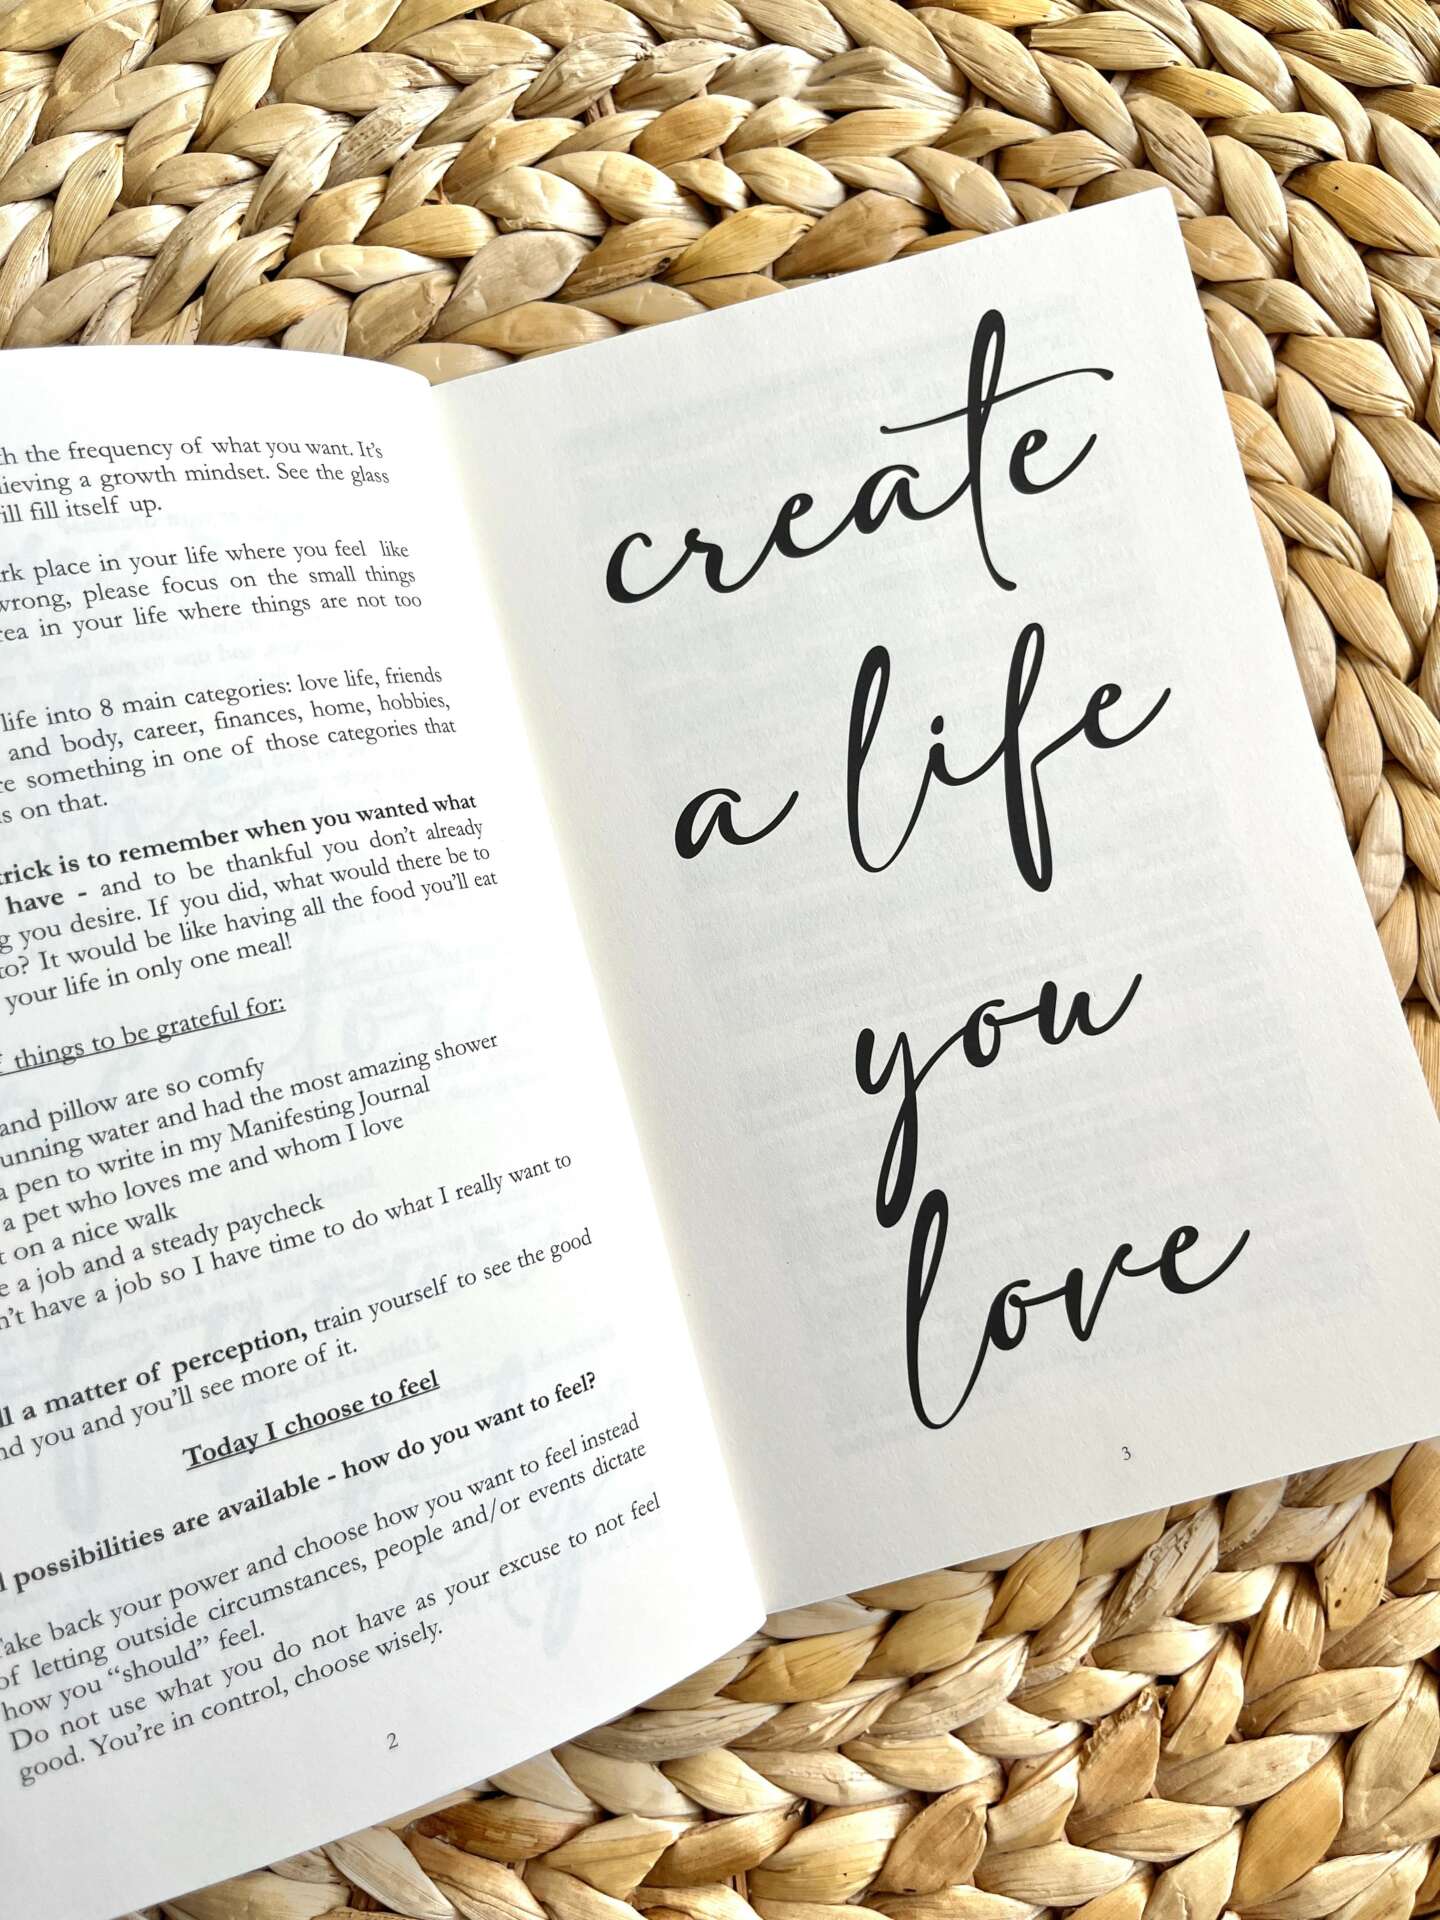 the frequency of what you want. It's
a growth mindset. See the glass
fill itself up.
place in your life where you feel like
wrong, please focus on the small things
in your life where things are not too
life into 8 main categories: love life, friends
and body, career, finances, home, hobbies,
something in one of those categories that
on that.
trick is to remember when you wanted what
have - and to be thankful you don't already
you desire. If you did, what would there be to
to? It would be like having all the food you'll eat
your life in only one meal!
things to be grateful for:
and pillow are so comfy
running water and had the most amazing shower
a pen to write in my Manifesting Journal
a pet who loves me and whom I love
on a nice walk
a job and a steady paycheck
have a job so I have time to do what I really want to
a matter of perception, train yourself to see the good
you and you'll see more of it.
Today I choose to feel
possibilities are available - how do you want to feel?
Take back your power and choose how you want to feel instead
of letting outside circumstances, people and/or events dictate
how you “should” feel.
Do not use what you do not have as your excuse to not feel
good. You're in control, choose wisely.
2
create
a life
you
love
3